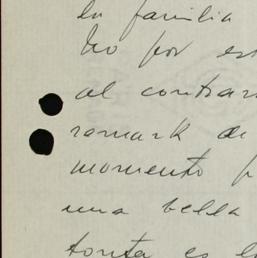 la familia
No por es
al contrar
remark de
momento p
una bella
tonta es l